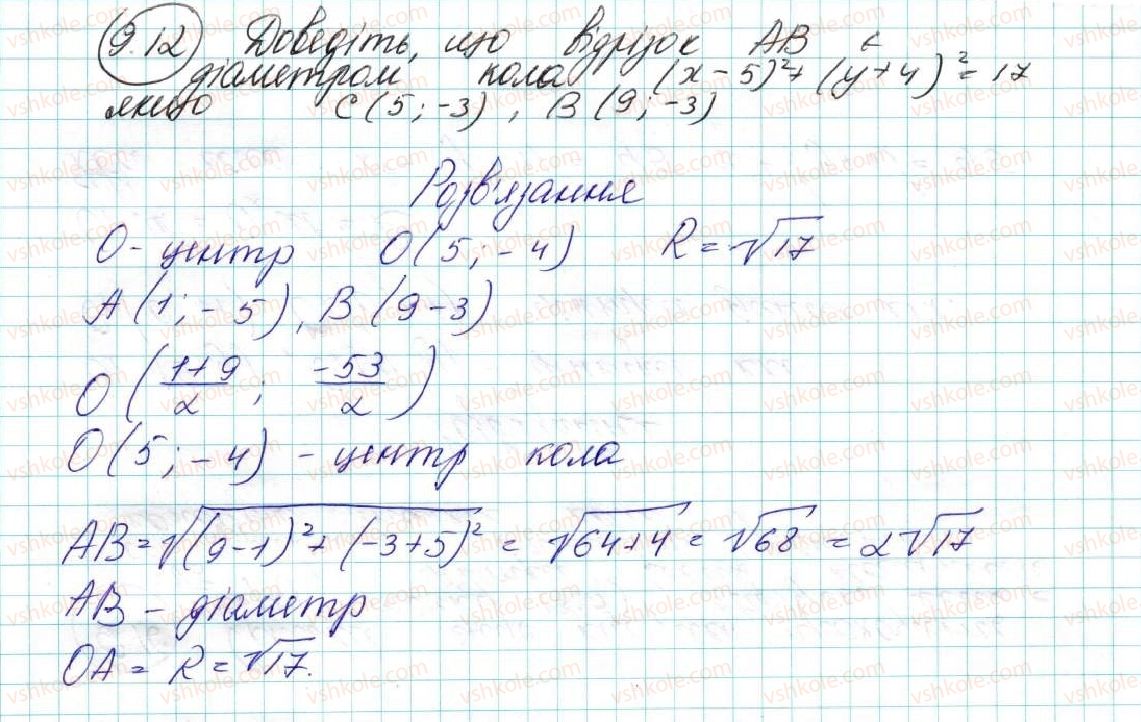 9.12 Доведіть, що відрізок AB є
діаметром кола (x-5)²+(y+4)²=17
якщо C(5;-3), B(9;-3)
Розв'язання
O - центр O(5;-4) R=√17
A(1;-5), B(9-3)
O(1+9/2; -53/2)
O(5;-4) - центр кола
AB=√(9-1)²+(-3+5)² = √64+4 = √68 = 2√17
AB - діаметр
OA = R = √17.